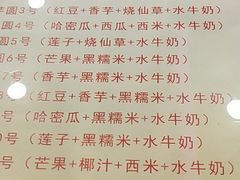 圆3号（红豆+香芋+烧仙草+水牛奶）
圆4号（哈密瓜+西瓜+西米+水牛奶）
圆5号（莲子+烧仙草+水牛奶）
圆6号（芒果+黑糯米+水牛奶）
7号（香芋+黑糯米+水牛奶）
号（红豆+香芋+黑糯米+水牛奶）
号（哈密瓜+黑糯米+水牛奶）
号（莲子+黑糯米+水牛奶）
号（芒果+椰汁+西米+水牛奶）